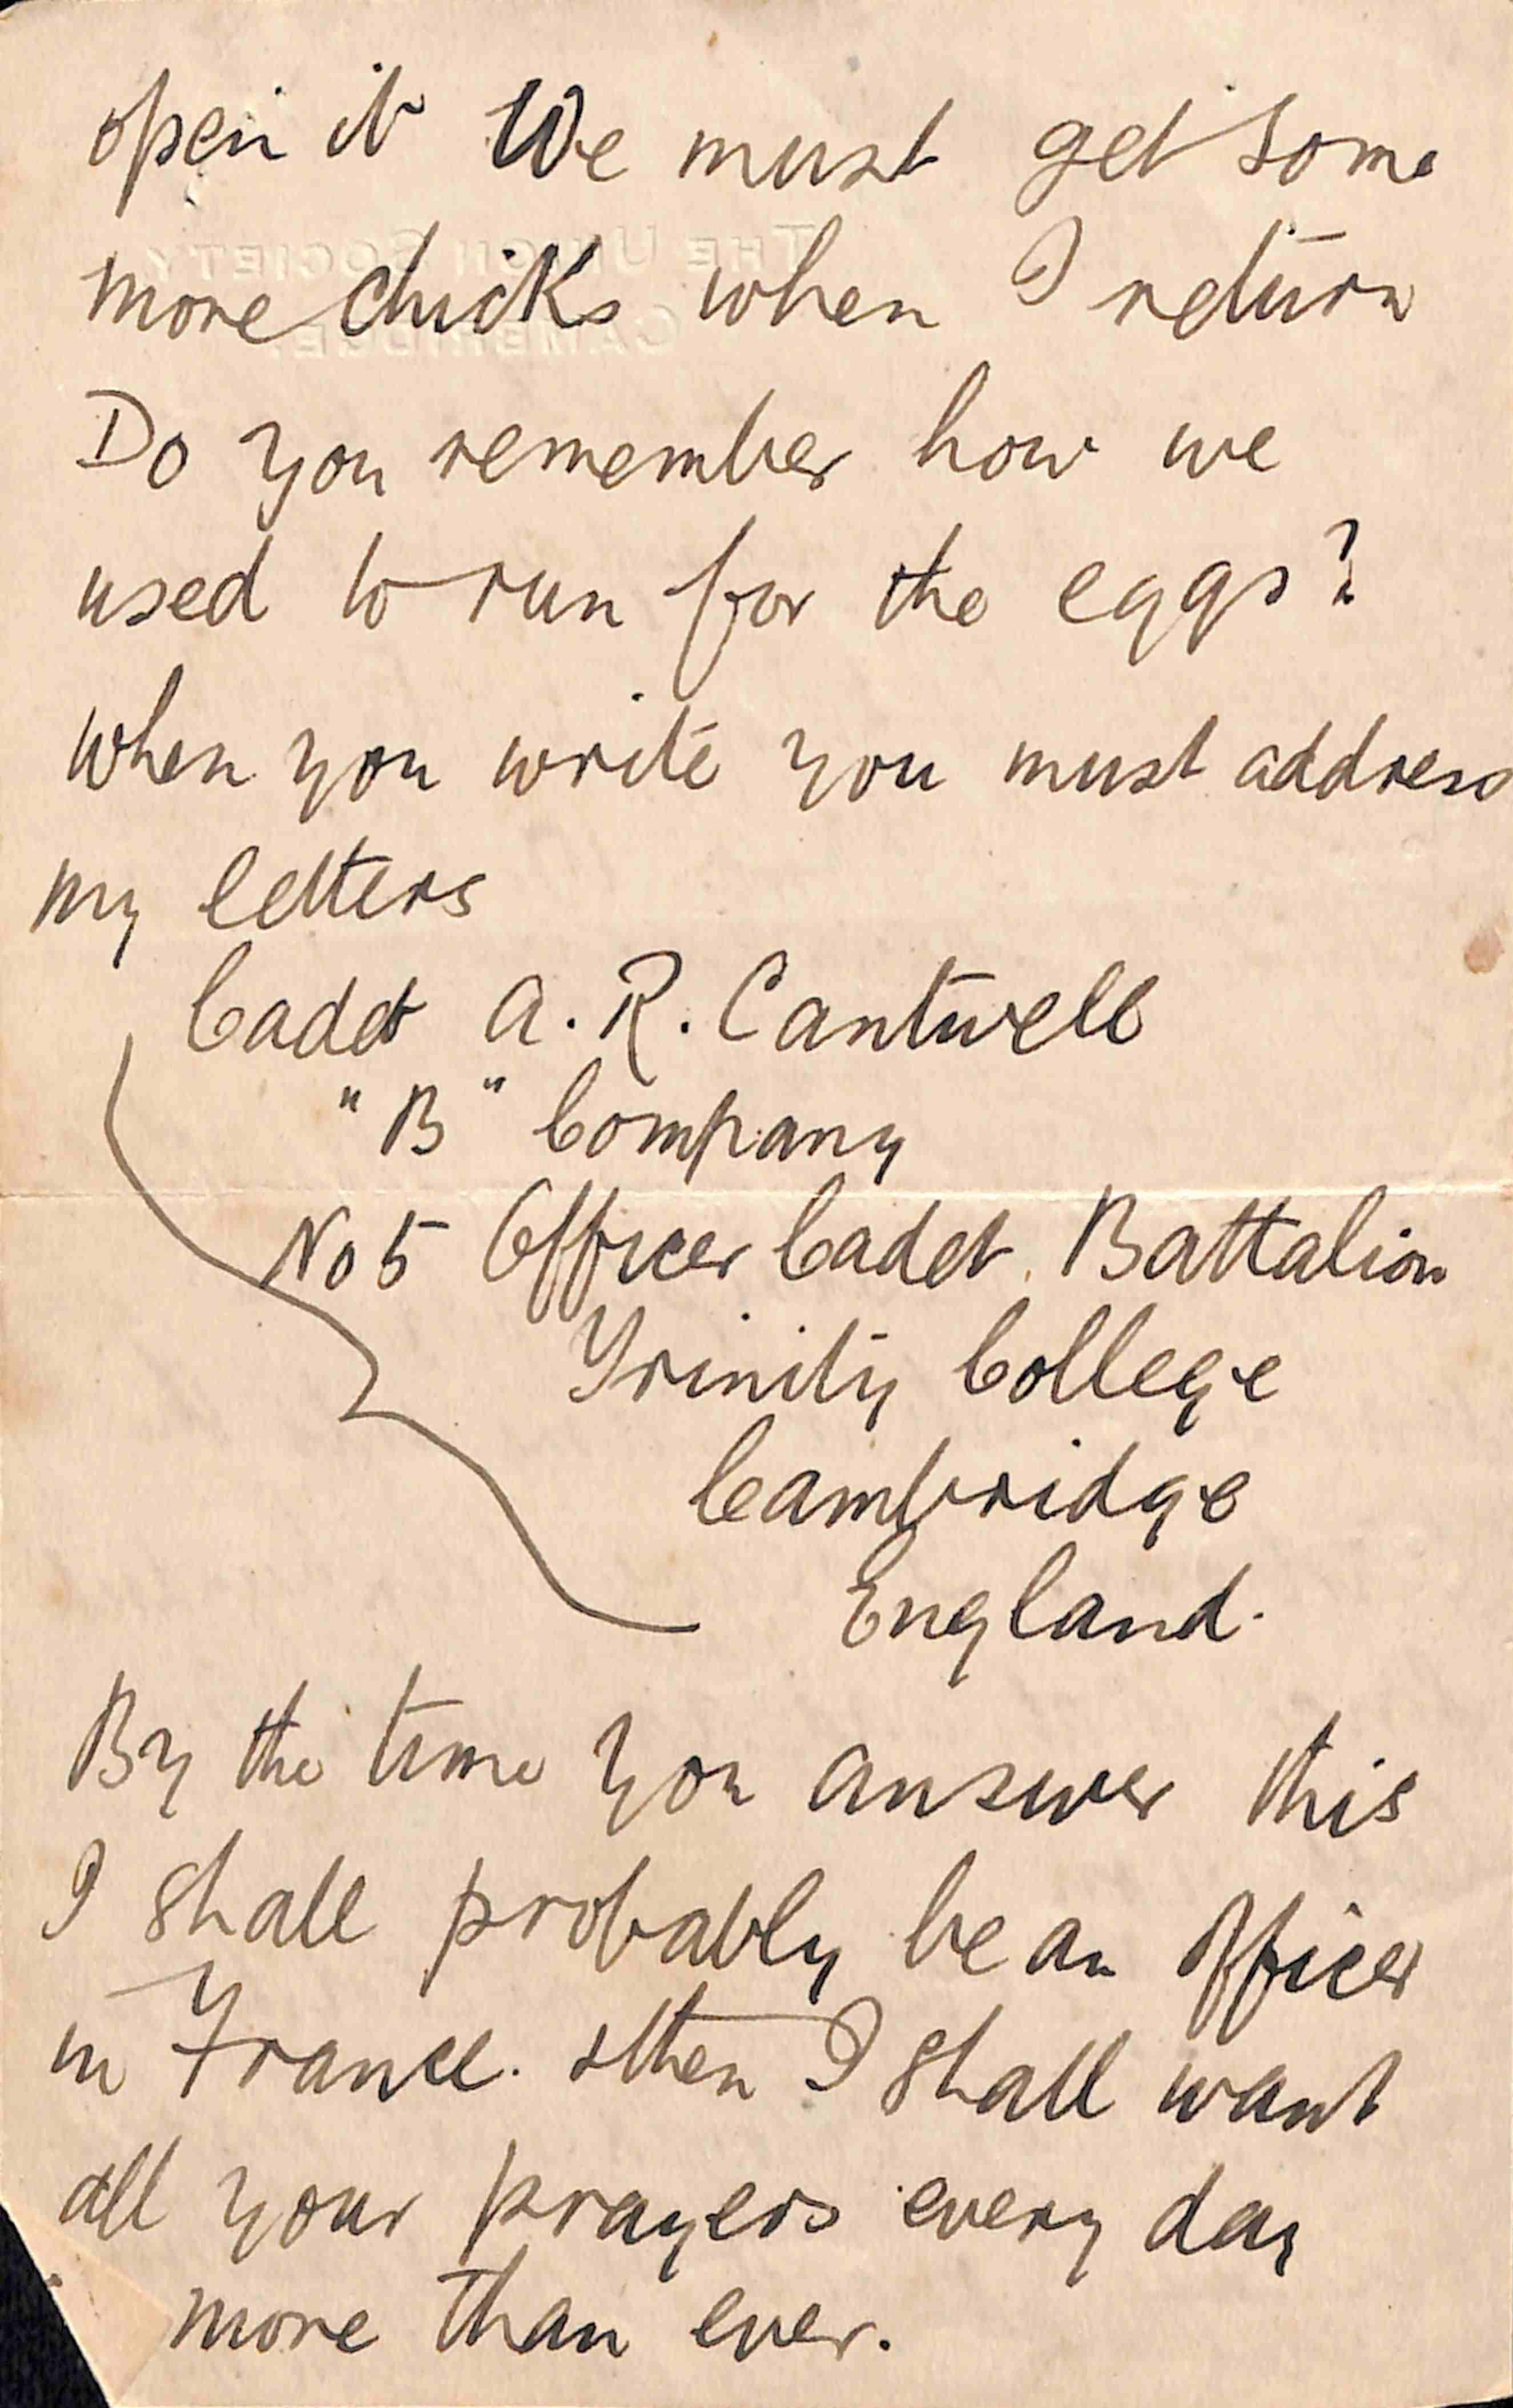 open it We must get some
THE UNION SOCIETY
more chicks when I return
CAMBRIDGE.
Do you remember how we
used to run for the eggs?
when you write you must address
my letters
Cadet A. R. Cantwell
"B" Company
No 5 Officer Cadet Battalion
Trinity College
Cambridge
England.
By the time you answer this
I shall probably be an officer
in France. then I shall want
all your prayers every day
more than ever.